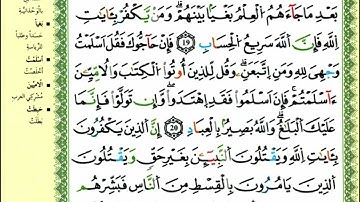 بَعْدِ مَا جَآءَهُمُ ٱلْعِلْمُ بَغْيًۢا بَيْنَهُمْ ۗ وَمَن يَكْفُرْ بِـَٔايَٰتِ
ٱللَّهِ فَإِنَّ ٱللَّهَ سَرِيعُ ٱلْحِسَابِ ١٩ فَإِنْ حَآجُّوكَ فَقُلْ أَسْلَمْتُ
وَجْهِىَ لِلَّهِ وَمَنِ ٱتَّبَعَنِ ۗ وَقُل لِّلَّذِينَ أُوتُوا۟ ٱلْكِتَٰبَ وَٱلْأُمِّيِّـۧنَ
ءَأَسْلَمْتُمْ ۚ فَإِنْ أَسْلَمُوا۟ فَقَدِ ٱهْتَدَوا۟ ۖ وَّإِن تَوَلَّوْا۟ فَإِنَّمَا
عَلَيْكَ ٱلْبَلَٰغُ ۗ وَٱللَّهُ بَصِيرٌۢ بِٱلْعِبَادِ ٢٠ إِنَّ ٱلَّذِينَ يَكْفُرُونَ
بِـَٔايَٰتِ ٱللَّهِ وَيَقْتُلُونَ ٱلنَّبِيِّـۧنَ بِغَيْرِ حَقٍّ وَيَقْتُلُونَ
ٱلَّذِينَ يَأْمُرُونَ بِٱلْقِسْطِ مِنَ ٱلنَّاسِ فَبَشِّرْهُم
بَغْيًا
أَسْلَمْتُ
أَخْلَصْتُ
ٱلْأُمِّيِّينَ
مُشْرِكِي العرب
حَبِطَتْ
بَطَلَتْ